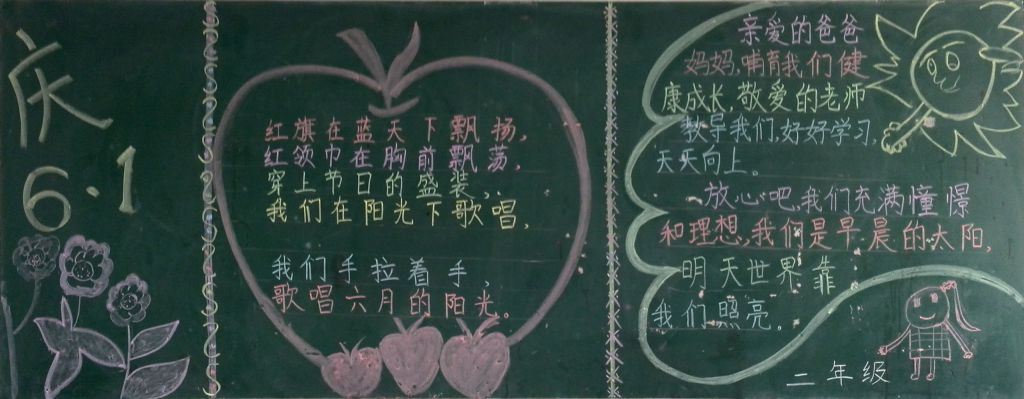 庆
6·1
红旗在蓝天下飘扬,
红领巾在胸前飘荡,
穿上节日的盛装,
我们在阳光下歌唱,
我们手拉着手,
歌唱六月的阳光。
亲爱的爸爸
妈妈,哺育我们健
康成长,敬爱的老师
教导我们,好好学习,
天天向上。
放心吧,我们充满憧憬
和理想,我们是早晨的太阳,
明天世界靠
我们照亮。
二年级